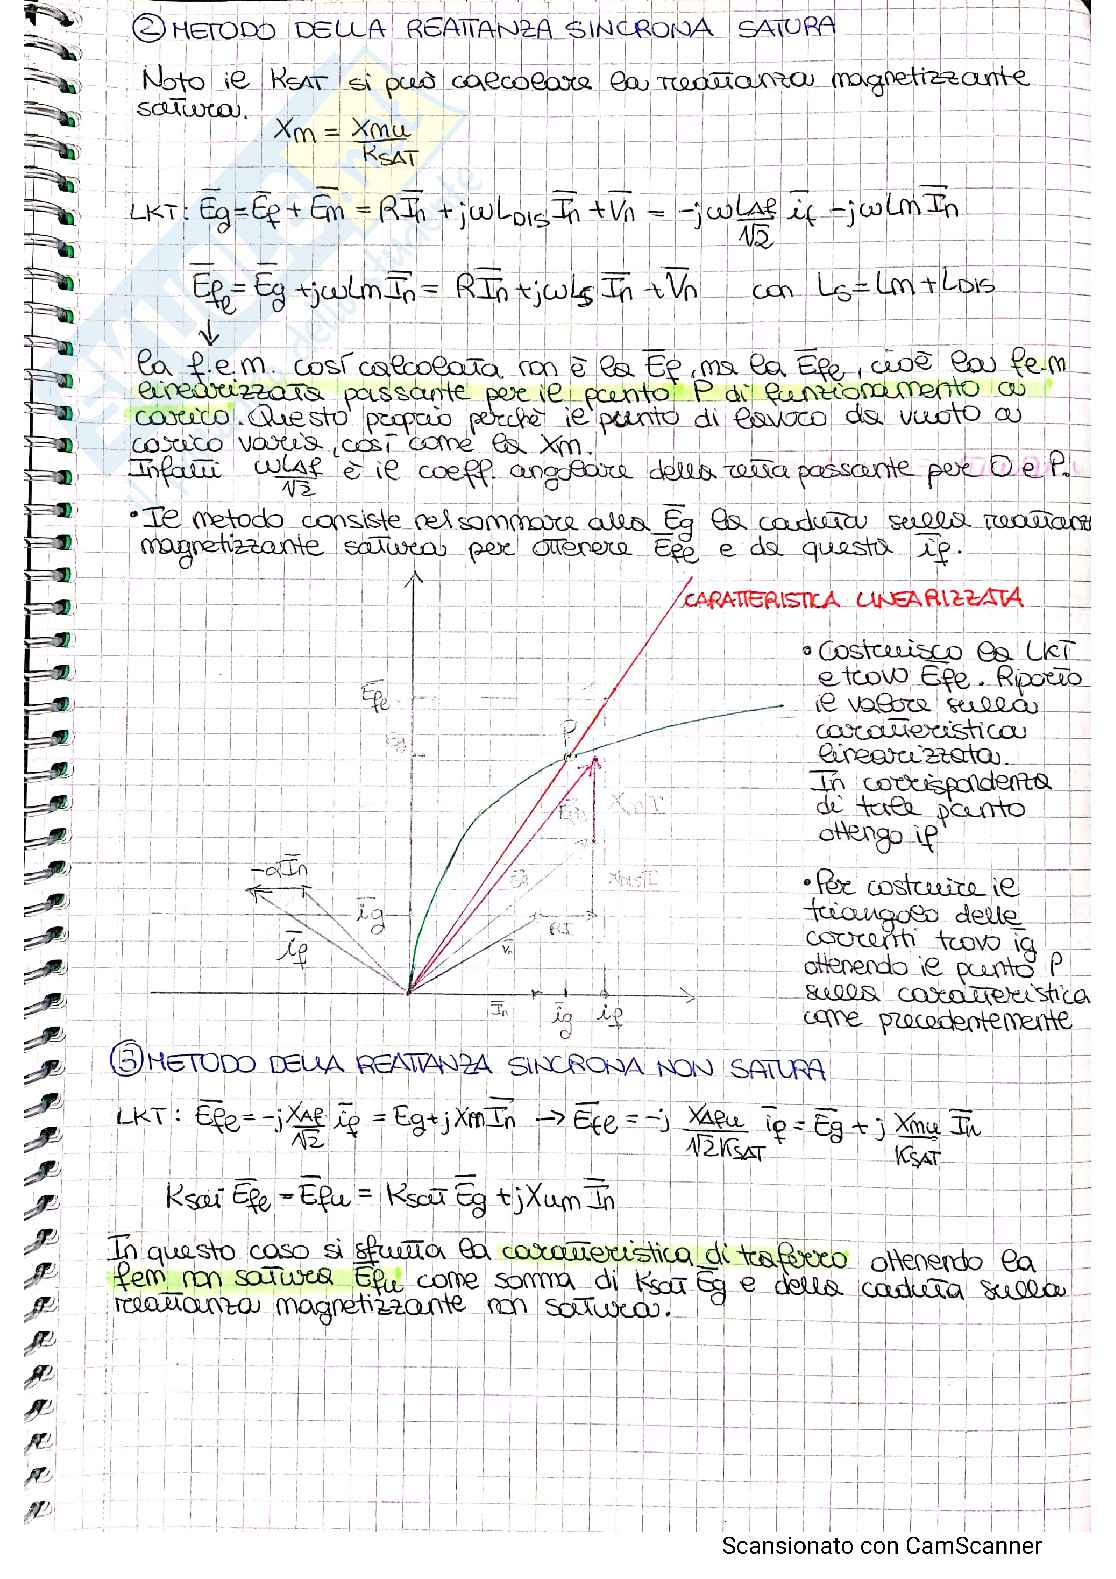 ② METODO DELLA REATTANZA SINCRONA SATURA
Noto il KSAT si può calcolare la reattanza magnetizzante
satura.
Xm = Xmu / KSAT
LKT: Eg = Ef + Em = RIn + jωLDIS In + Vn = -jωLΔf/√2 if - jωLm In
Efe = Eg + jωLm In = RIn + jωLs In + Vn con Ls = Lm + LDIS
la f.e.m. così calcolata non è la Ef, ma la Efe, cioè la fem
linearizzata passante per il punto P di funzionamento a
carico. Questo proprio perché il punto di lavoro da vuoto a
carico varia, così come la Xm.
Infatti ωLΔf/√2 è il coeff. angolare della retta passante per O e P.
• Il metodo consiste nel sommare alla Eg la caduta sulla reattanz
magnetizzante satura per ottenere Efe e da questa if.
CARATTERISTICA LINEARIZZATA
Efe
Eg
P
XmI
XDISI
-αIn
if
ig
Vn
RI
In ig if
• Costruisco la LKT
e trovo Efe. Riporto
il valore sulla
caratteristica
linearizzata.
In corrispondenza
di tale punto
ottengo if
• Per costruire il
triangolo delle
correnti trovo ig
ottenendo il punto P
sulla caratteristica
come precedentemente
③ METODO DELLA REATTANZA SINCRONA NON SATURA
LKT: Efe = -j XΔf/√2 if = Eg + jXm In → Efe = -j XΔfu/√2KSAT if = Eg + j Xmu/KSAT In
Ksat Efe = Efu = Ksat Eg + jXum In
In questo caso si sfrutta la caratteristica di traferro ottenendo la
fem non satura Efu come somma di Ksat Eg e della caduta sulla
reattanza magnetizzante non satura.
Scansionato con CamScanner